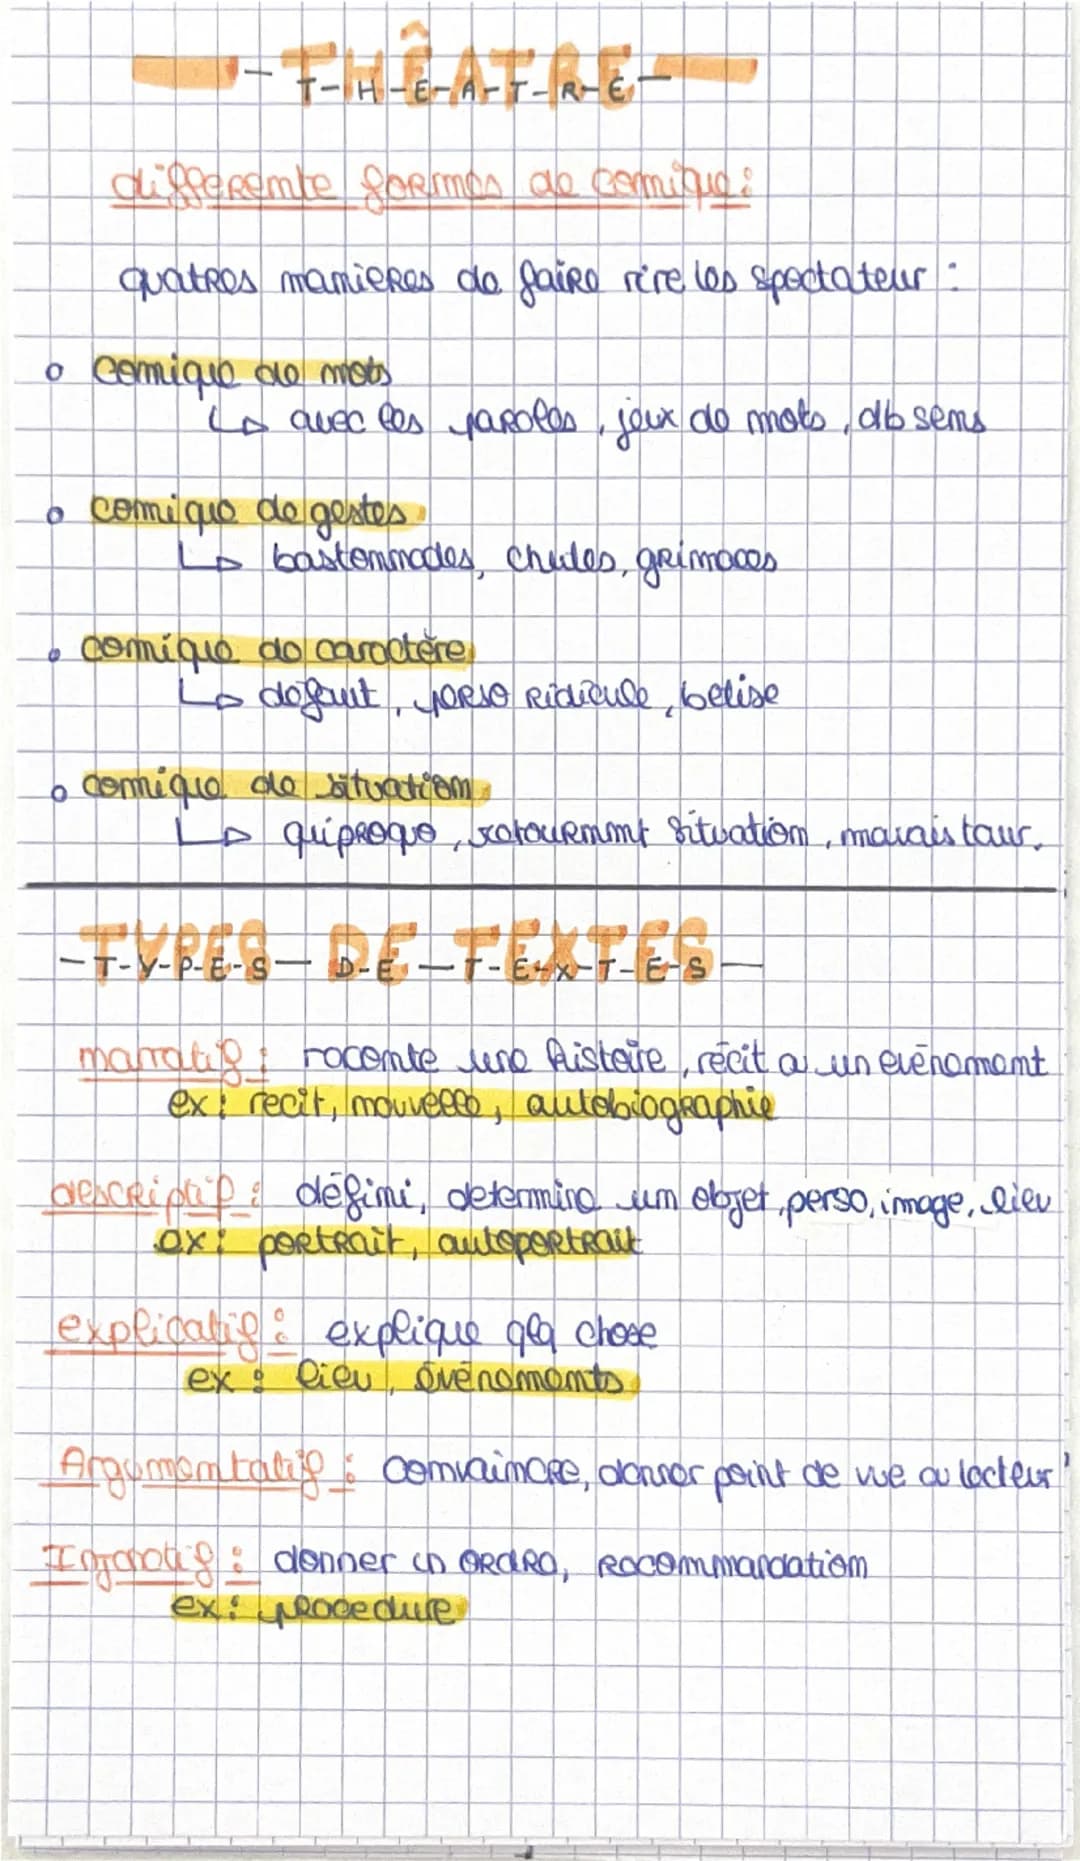 THÊATRE
T-H-E-A-T-R-E
differente formes de comique :
quatres manieres de faire rire les spectateur :
comique de mots
↳ avec les paroles, jeux de mots, db sens
comique de gestes
↳ bastonnades, chutes, grimaces
comique de caractère
↳ defaut, perso ridicule, betise
comique de situation
↳ quiproquo, retournmnt situation, mauvais tour.
TYPES DE TEXTES
-T-Y-P-E-S- D-E -T-E-X-T-E-S-
narratif : raconte une histoire, récit a un evènement
ex : recit, nouvelle, autobiographie
descriptif : défini, determine un objet, perso, image, lieu
ex : portrait, autoportrait
explicatif : explique qlq chose
ex : lieu, évènements
Argumentatif : convaincre, donner point de vue au lecteur
Injonctif : donner un ordre, recommandation
ex : procedure